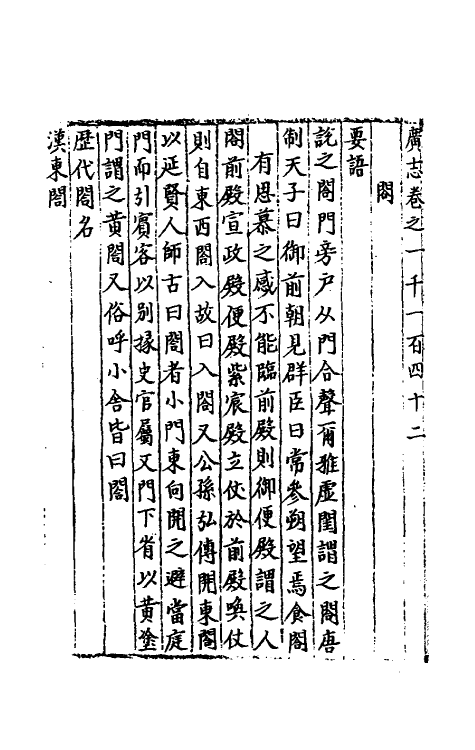 廣志卷之一千一百四十二
閤
要語
説之閤門旁戸从門合聲爾雅虛閨謂之閤唐
制天子日御前朝見群臣日常參朔望焉食閤
有思慕之感不能臨前殿則御便殿謂之入
閤前殿宣政殿便殿紫宸殿立仗於前殿喚仗
則自東西閤入故曰入閤又公孫弘傳開東閤
以延賢人師古曰閤者小門東向開之避當庭
門而引賓客以别掾史官屬又門下省以黄塗
門謂之黄閤又俗呼小舍皆曰閤
歷代閤名
漢東閤